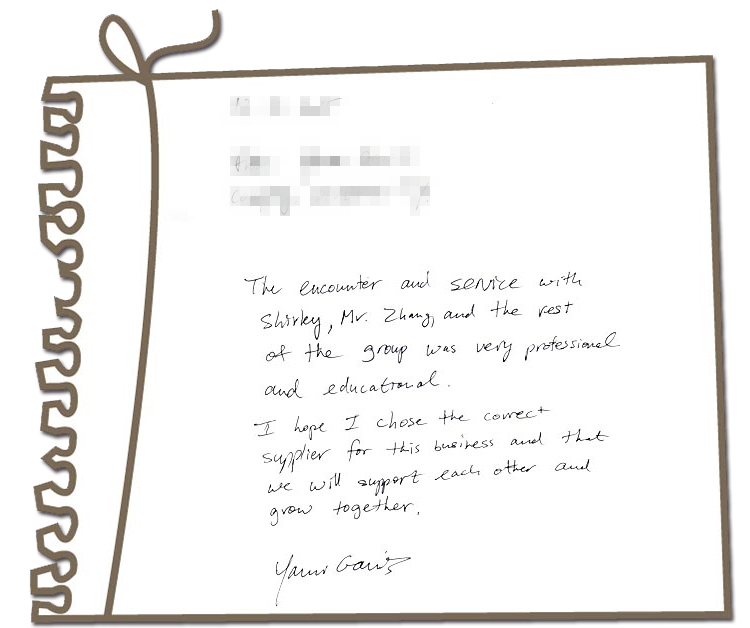 The encounter and service with
Shirley, Mr. Zhang, and the rest
of the group was very professional
and educational.
I hope I chose the correct
supplier for this business and that
we will support each other and
grow together.